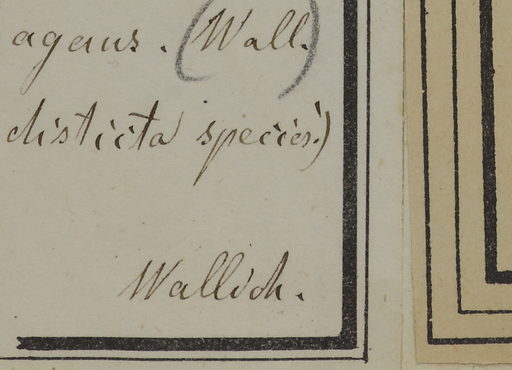 agans. (Wall.)
disticta species.)
Wallich.